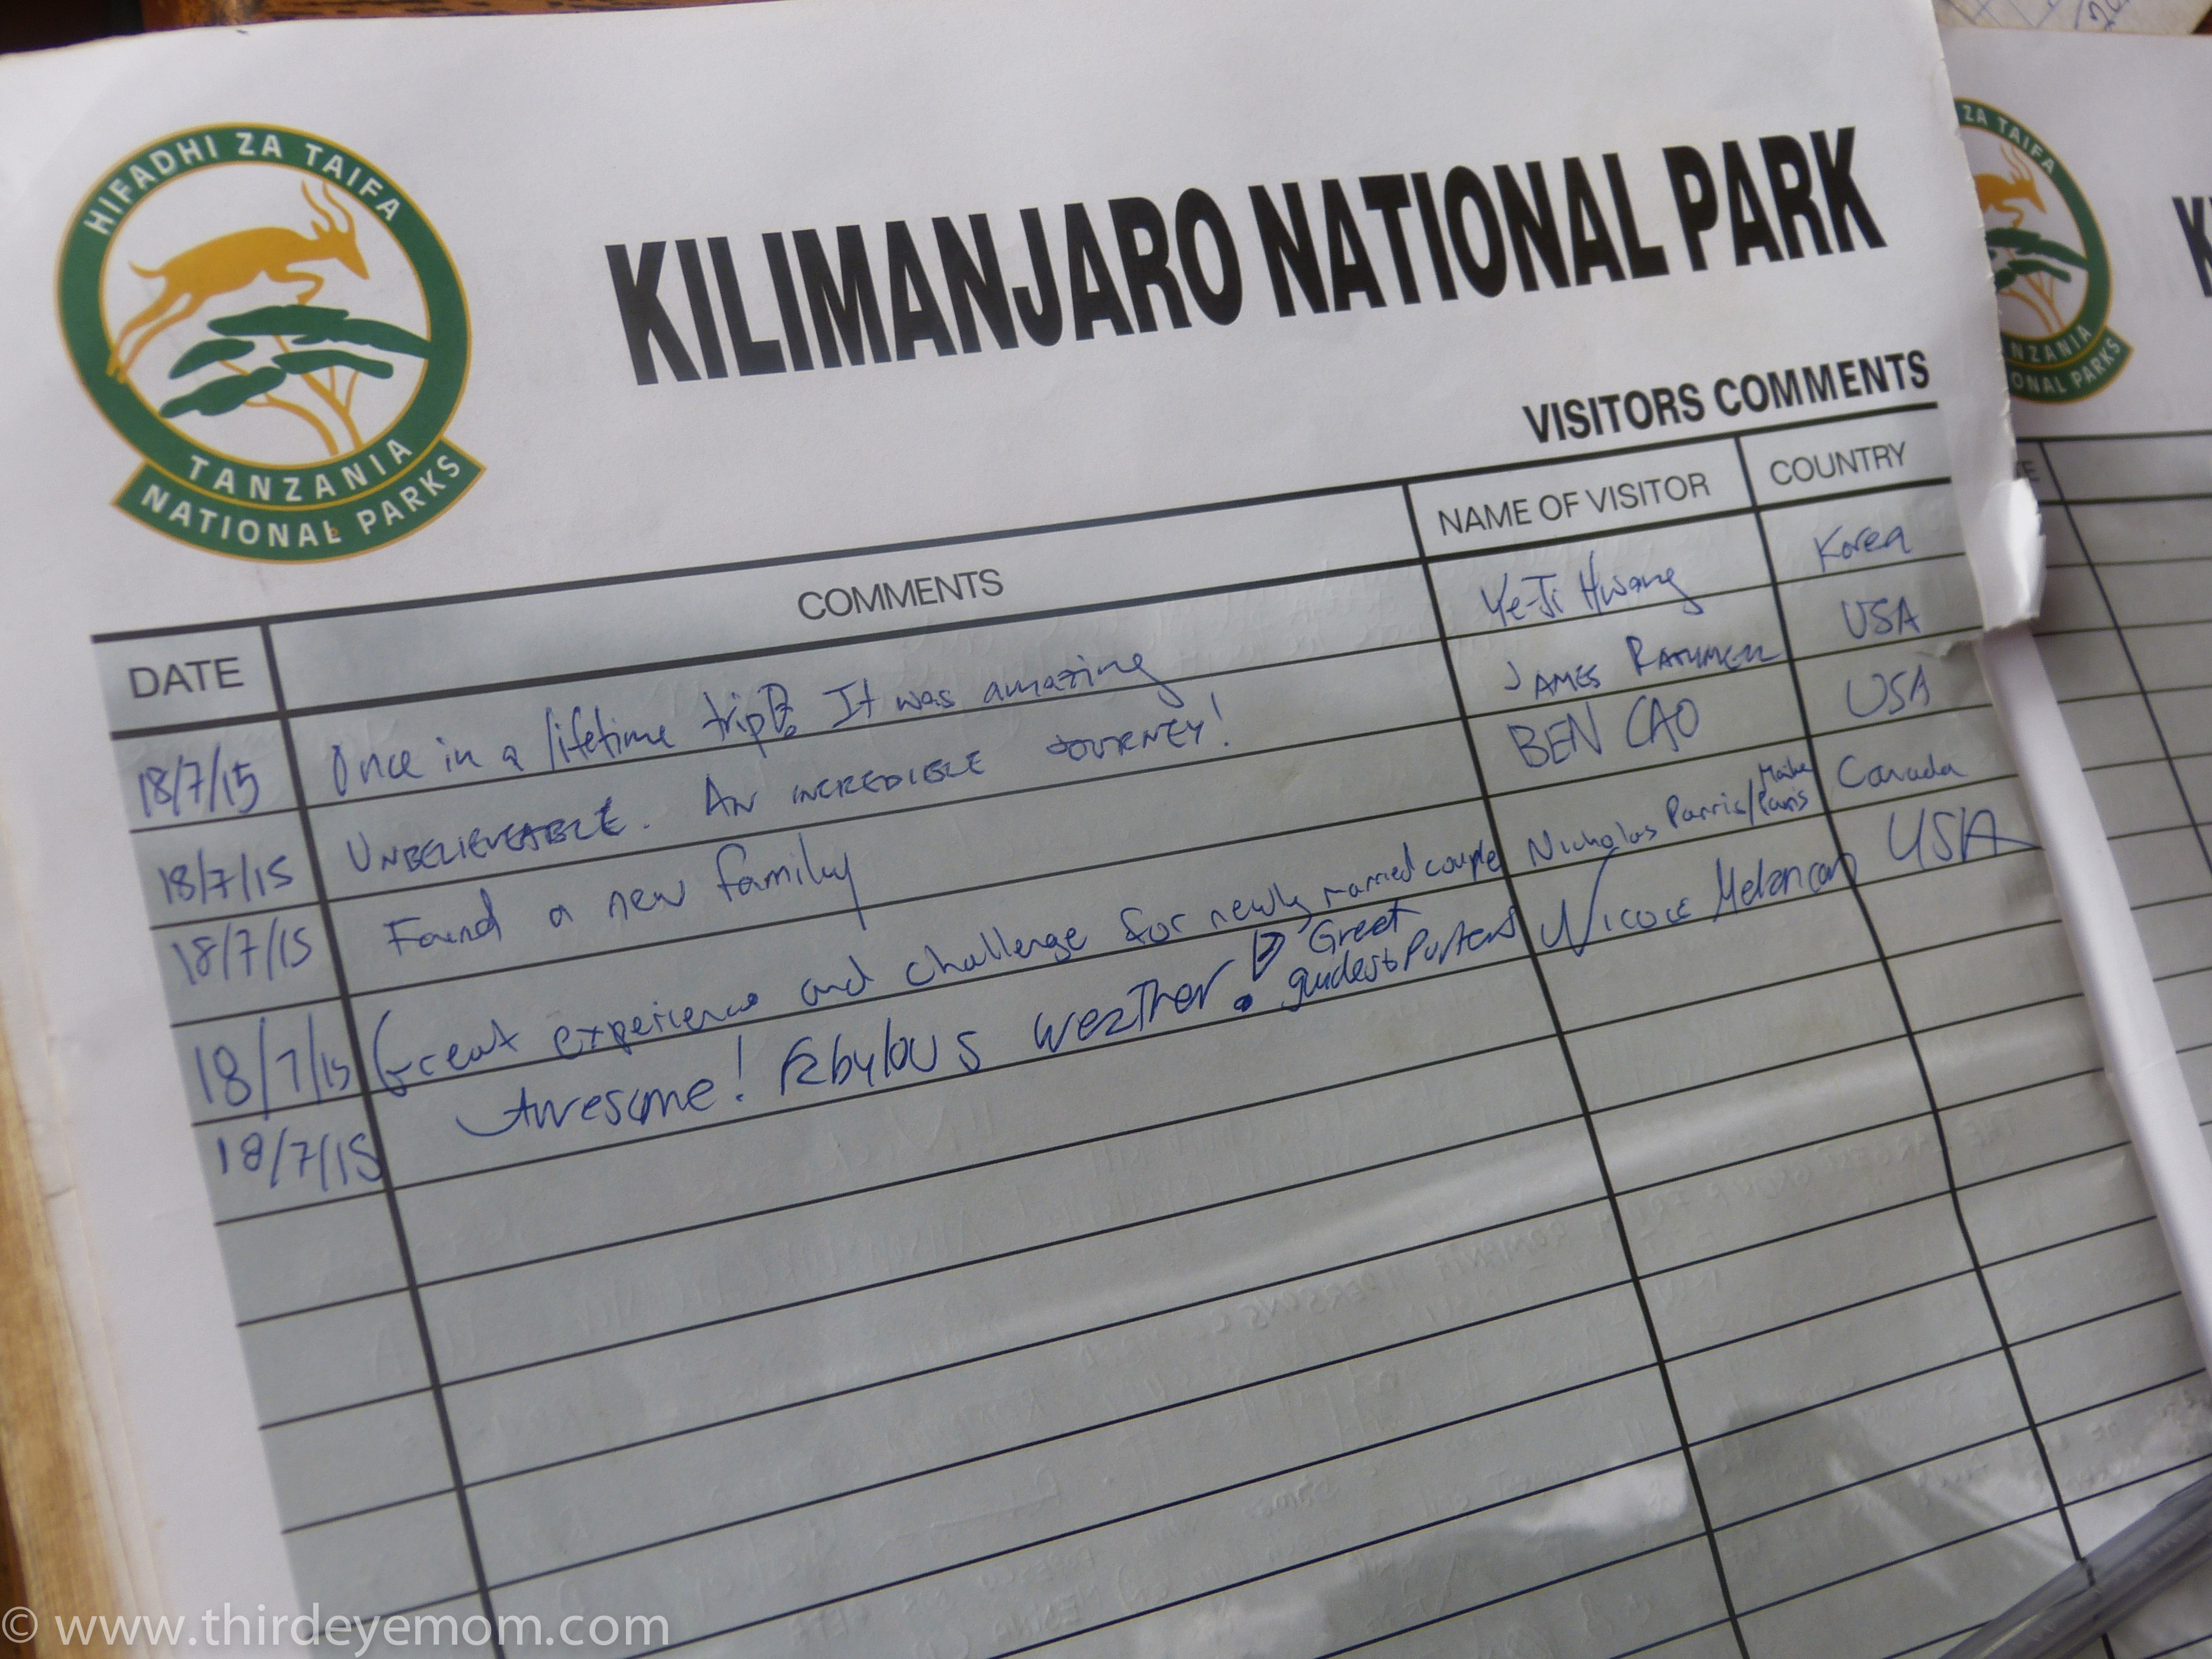 HIFADHI ZA TAIFA
TANZANIA
NATIONAL PARKS
KILIMANJARO NATIONAL PARK
VISITORS COMMENTS
DATE COMMENTS NAME OF VISITOR COUNTRY
18/7/15 Once in a lifetime trip!! It was amazing Ye-Ji Hwang Korea
18/7/15 UNBELIEVEABLE. AN INCREDIBLE JOURNEY! JAMES RATHMELL USA
18/7/15 Found a new family BEN CAO USA
18/7/15 Great experience and challenge for newly married couple Nicholas Parris/ Parris Canada
18/7/15 Awesome! Fabulous weather! Great guides & Porters Nicole Melancon USA
ZA TAIFA
NZANIA
ONAL PARKS
© www.thirdeyemom.com